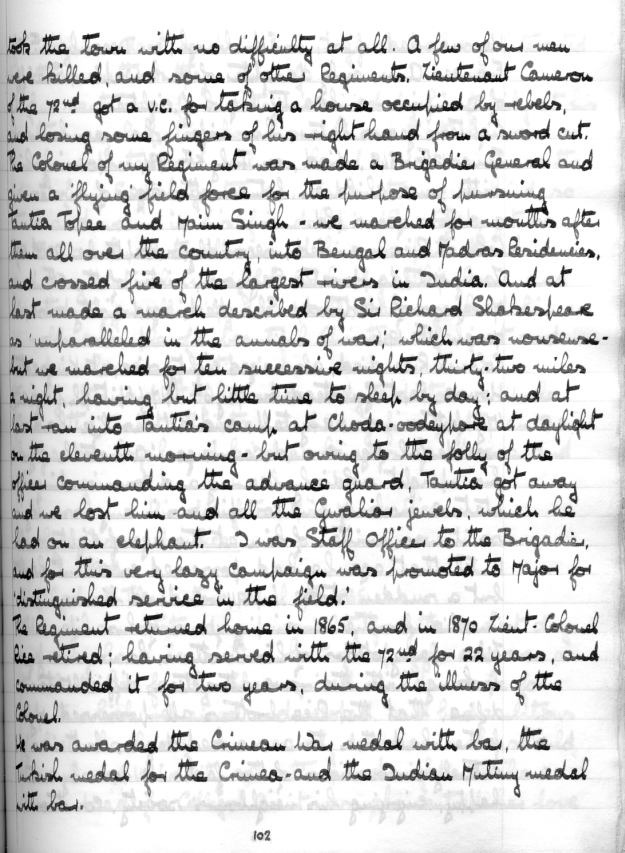 took the town with no difficulty at all. A few of our men
were killed, and some of other Regiments. Lieutenant Cameron
of the 72nd got a V.C. for taking a house occupied by rebels,
and losing some fingers of his right hand from a sword cut.
The Colonel of my Regiment was made a Brigadier General and
given a 'flying' field force for the purpose of pursuing
Tantia Topee and Maun Singh - we marched for months after
them all over the country, into Bengal and Madras Residencies,
and crossed five of the largest rivers in India. And at
last made a march described by Sir Richard Shakespeare
as 'unparalleled in the annals of war', which was nonsense -
but we marched for ten successive nights, thirty-two miles
a night, having but little time to sleep by day; and at
last ran into Tantia's camp at Choda-oodeypore at daylight
on the eleventh morning - but owing to the folly of the
officer commanding the advance guard, Tantia got away
and we lost him and all the Gwalior jewels, which he
had on an elephant. I was Staff Officer to the Brigadier,
and for this very lazy campaign was promoted to Major for
'distinguished service in the field.'
The Regiment returned home in 1865, and in 1870 Lieut-Colonel
Rice retired; having served with the 72nd for 22 years, and
commanded it for two years, during the illness of the
Colonel.
He was awarded the Crimean War medal with bar, the
Turkish medal for the Crimea - and the Indian Mutiny medal
with bar.
102